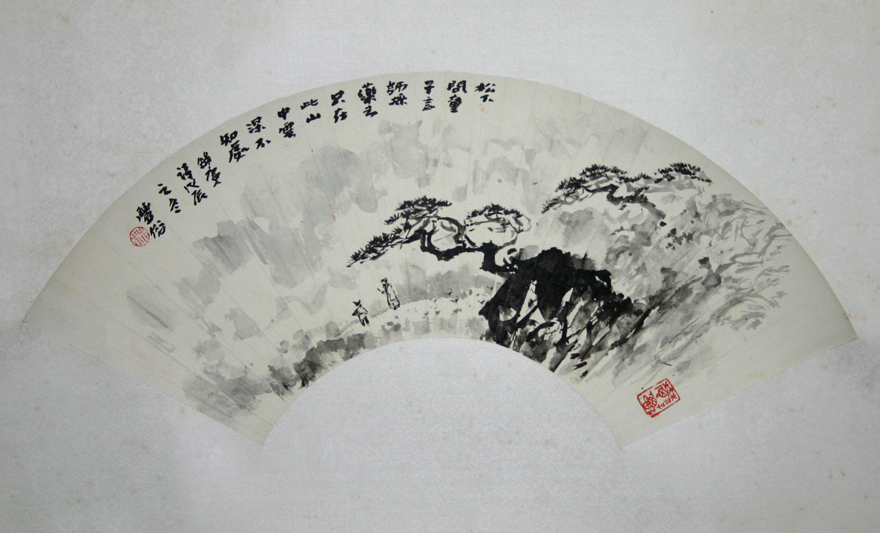 松下
問童
子言
師採
藥去
只在
此山
中雲
深不
知處
錄賈
詩戊辰
之冬